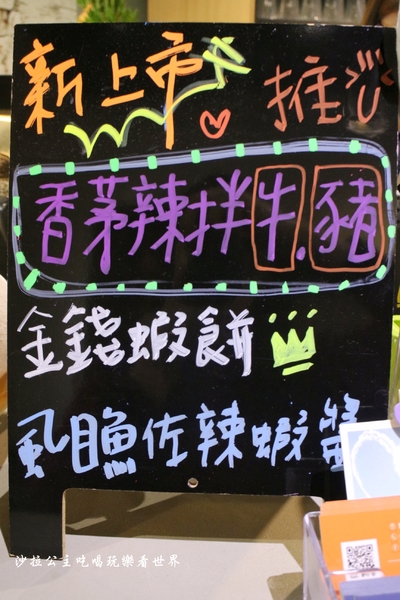 新上市 推
香茅辣拌牛.豬
金錢蝦餅
虱目魚佐辣蝦醬
沙拉公主吃喝玩樂看世界